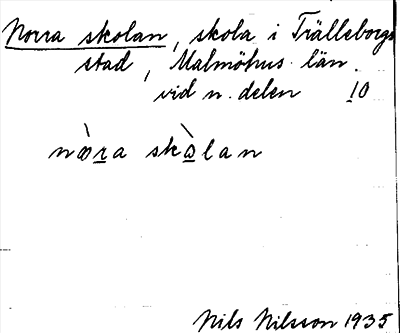 Norra skolan, skola i Trälleborgs
stad, Malmöhus län.
vid n. delen 10
nòra skòlan
Nils Nilsson 1935